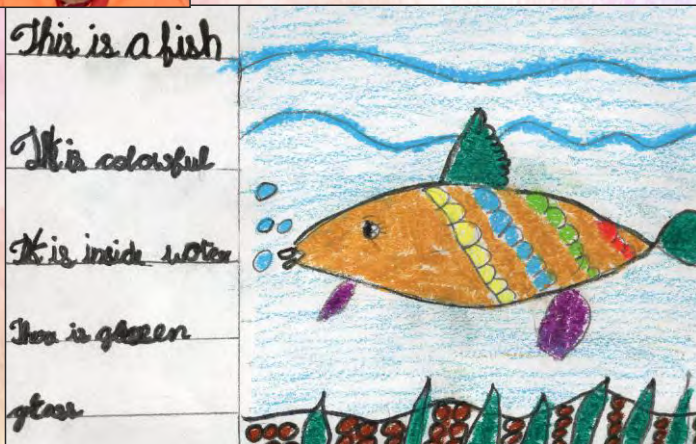 This is a fish
It is colourful
It is inside water
Ther is green
grass